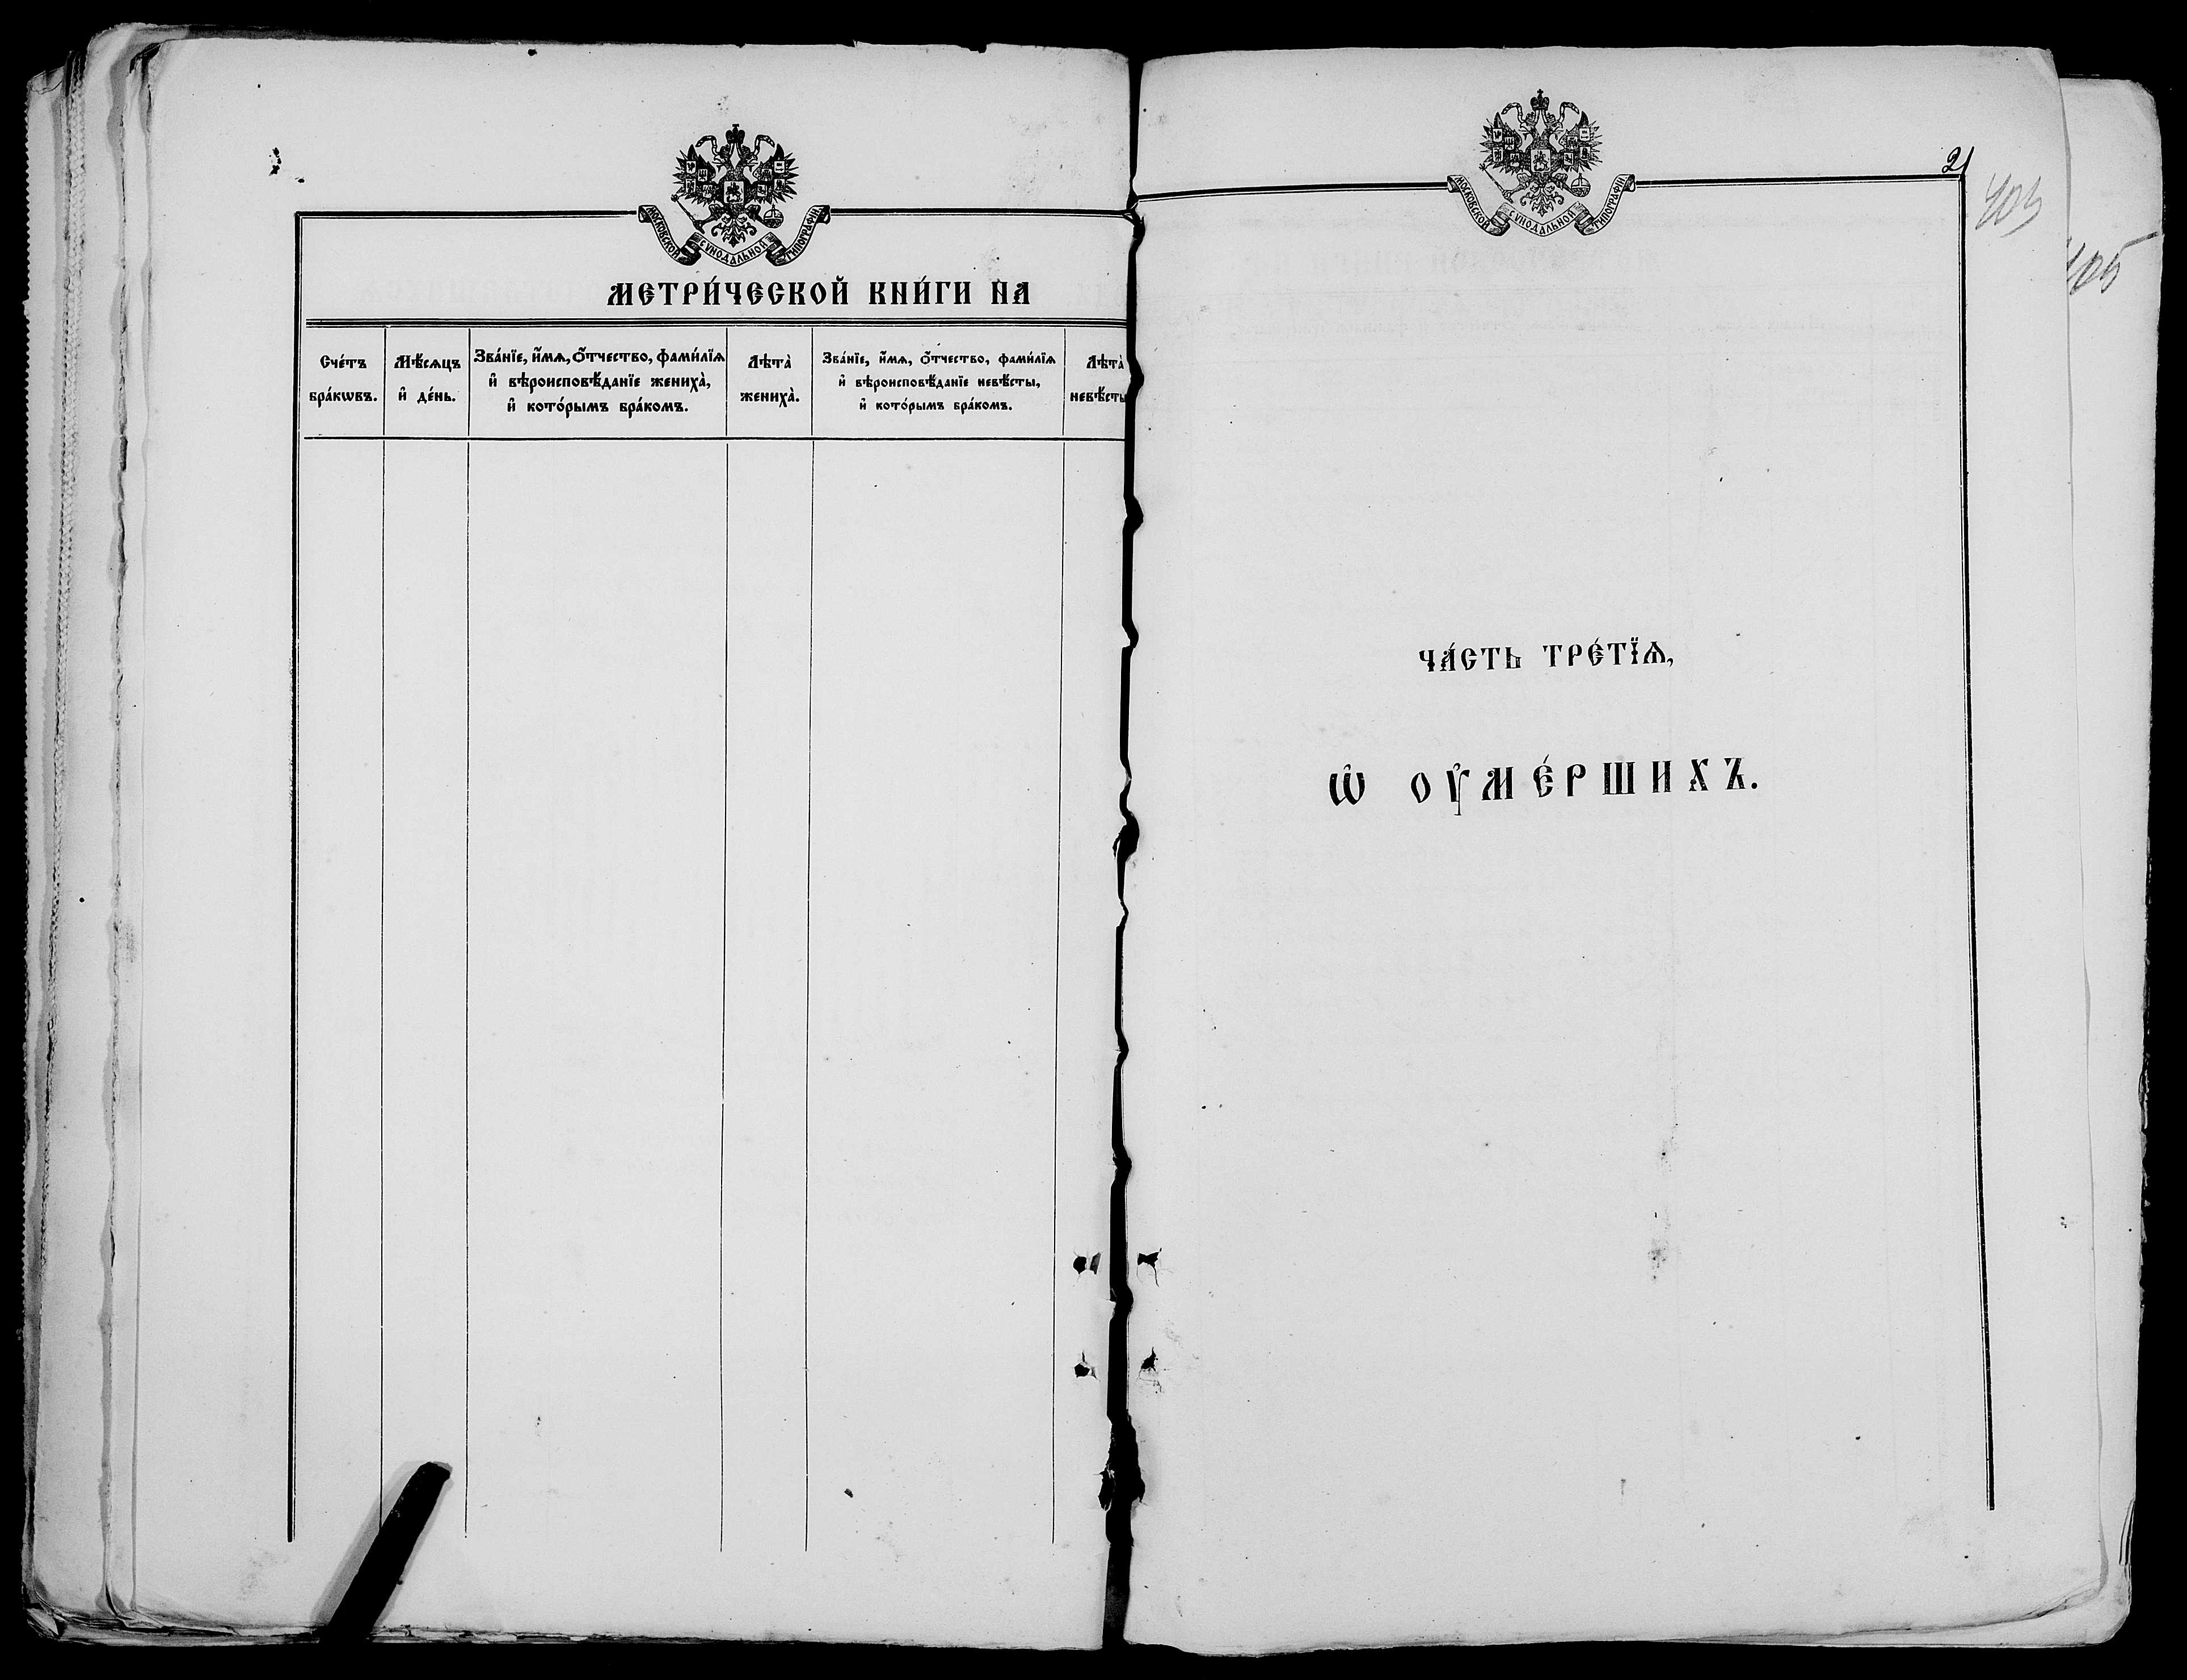 МОСКОВСКОЙ СѴНОДАЛЬНОЙ ТИПОГРАФІИ
МЕТРИ́ЧЕСКОЙ КНИ́ГИ НА
Сче́тъ
бра́кѡвъ.
Мѣ́сѧцъ
и҆ де́нь.
Зва́нїе, и҆́мѧ, ѻ҆́тчество, фами́лїѧ
и҆ вѣроисповѣ́данїе жениха̀,
и҆ кото́рымъ бра́комъ.
Лѣта̀
жениха̀.
Зва́нїе, и҆́мѧ, ѻ҆́тчество, фами́лїѧ
и҆ вѣроисповѣ́данїе невѣ́сты,
и҆ кото́рымъ бра́комъ.
Лѣта̀
невѣ́сты
МОСКОВСКОЙ СѴНОДАЛЬНОЙ ТИПОГРАФІИ
21
403
405
ЧА́СТЬ ТРЕ́ТЇѦ,
Ѡ҆ ОУ҆МЕ́РШИХЪ.